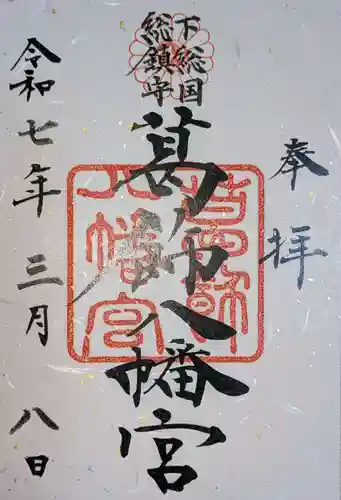 奉拝
下総国
総鎮守
葛飾八幡宮
令和七年三月八日
葛飾
八幡宮